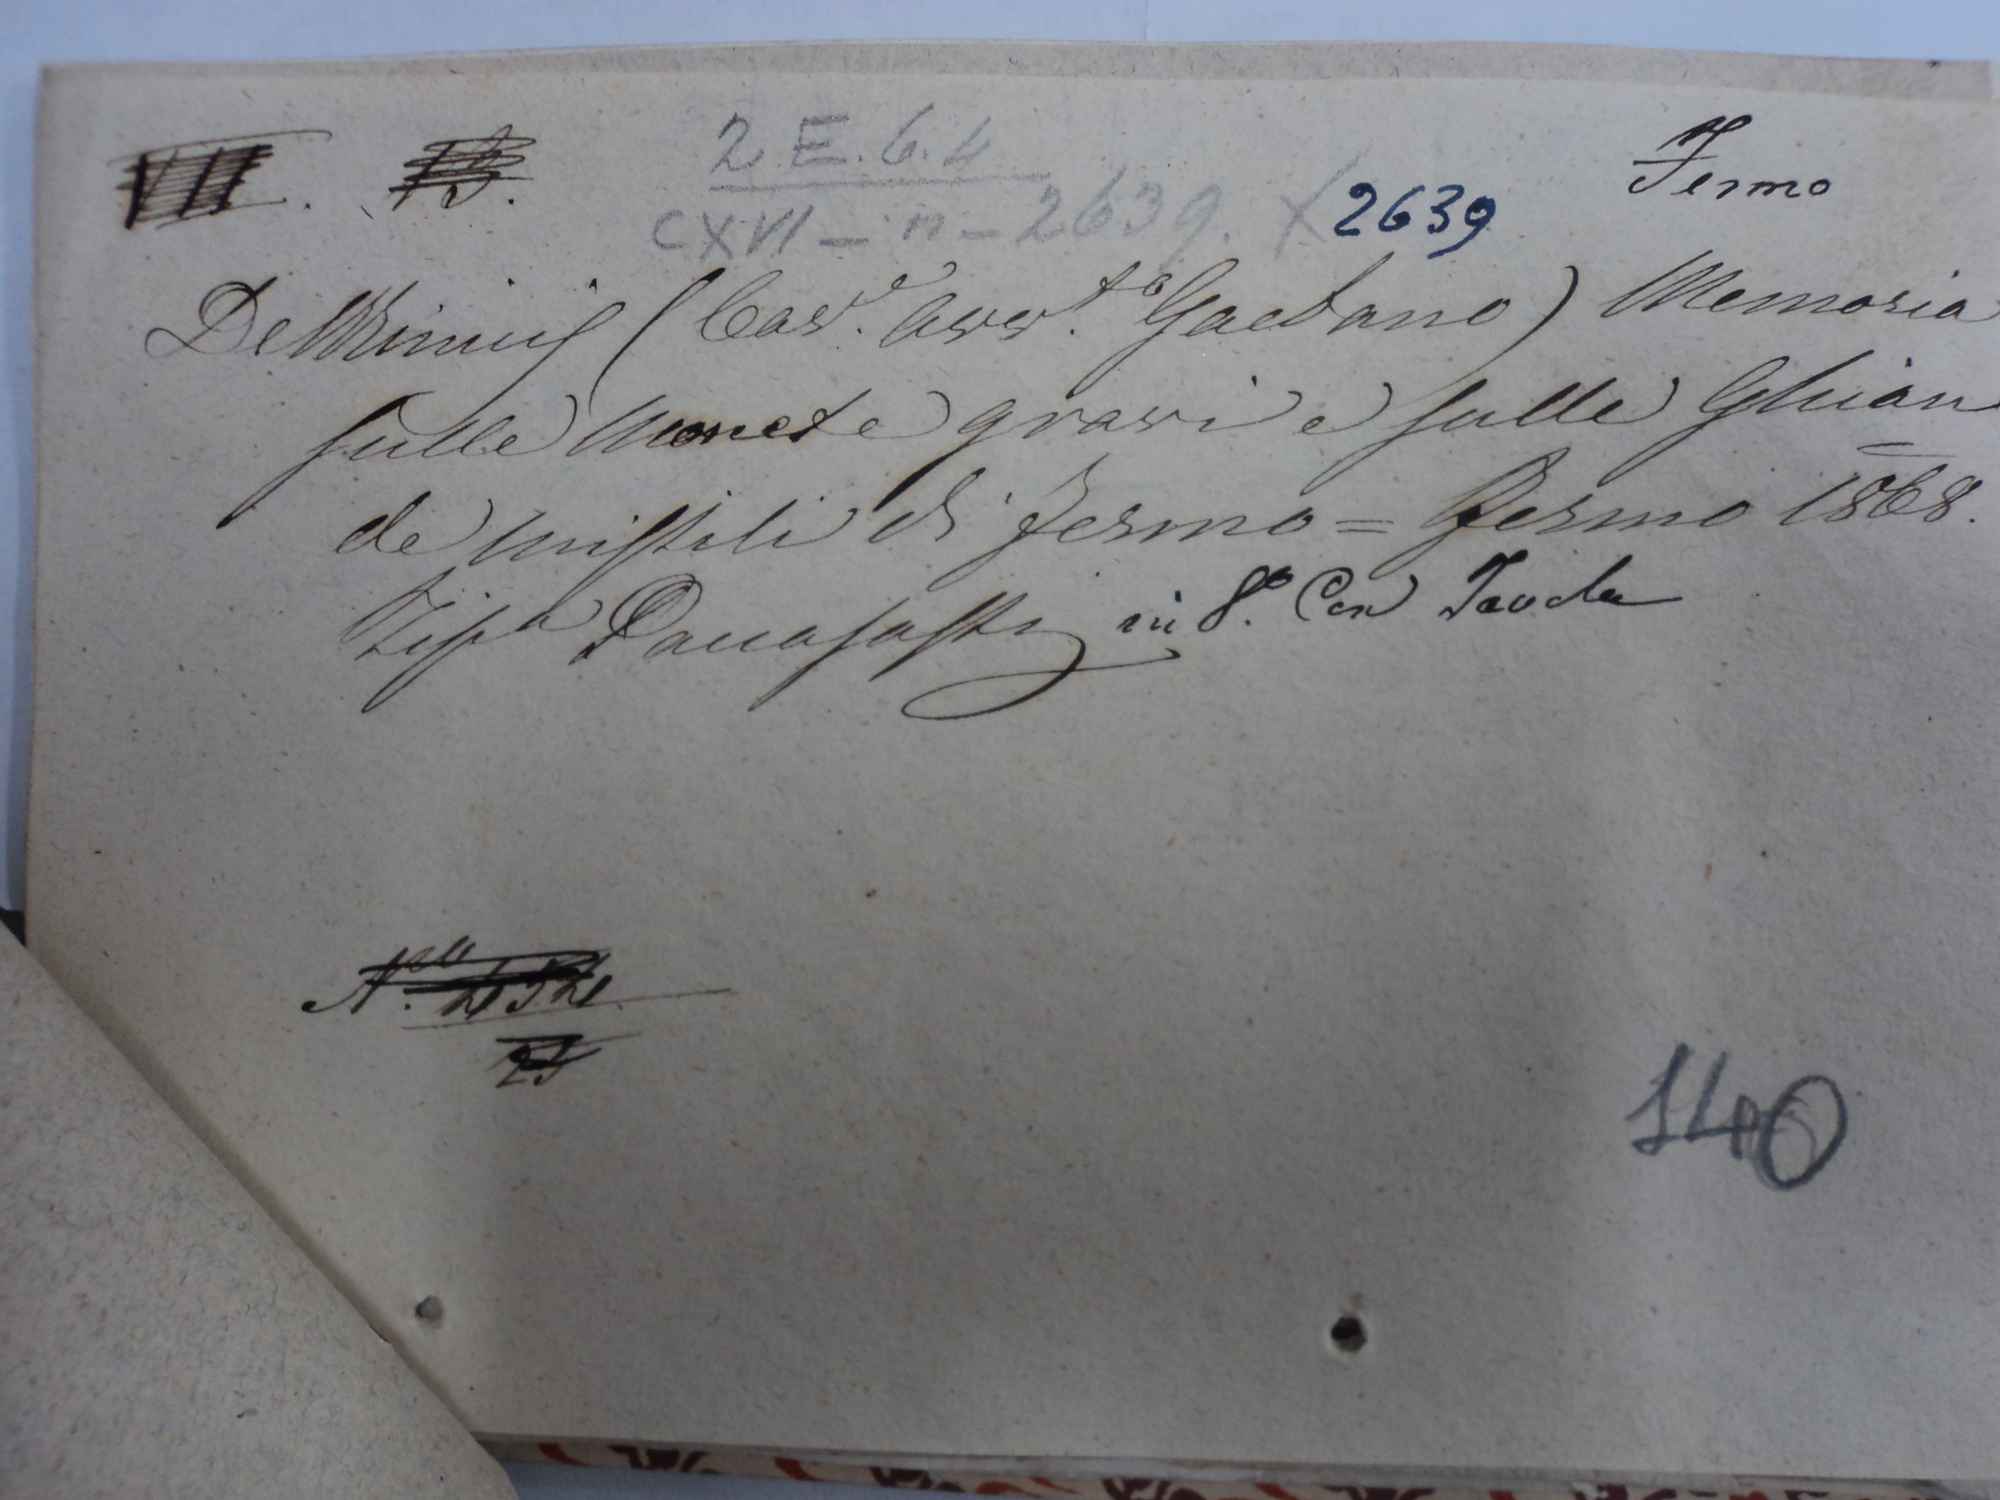 VII. 15.
2 E. 6. 4
Fermo
CXVI - n - 2639. X 2639
De Minicis (Cav.e Avv.to Gaetano) Memoria
sulle Monete gravi e sulle Ghian
de missili di Fermo = Fermo 1868.
Tip.a Paccasassi in 8.o Con Tavola
N.
140